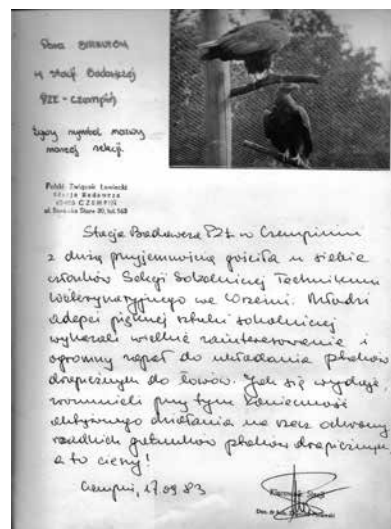 Para BIELIKÓW
w Stacji Badawczej
PZŁ - Czempiń
żywy symbol nazwy
naszej sekcji.
Polski Związek Łowiecki
Stacja Badawcza
CZEMPIŃ
Stacja Badawcza PZŁ w Czempiniu
z dużą przyjemnością gościła u siebie
członków Sekcji Sokolniczej Technikum
Weterynaryjnego we Wrześni. Młodzi
adepci pięknej sztuki sokolniczej
wykazali wielkie zainteresowanie i
ogromny zapał do układania ptaków
drapieżnych do łowów. Jak się wydaje,
zrozumieli przy tym konieczność
aktywnego działania na rzecz ochrony
rzadkich gatunków ptaków drapieżnych
a to cieszy!
Czempiń, 17.09.83
Kierownik Stacji